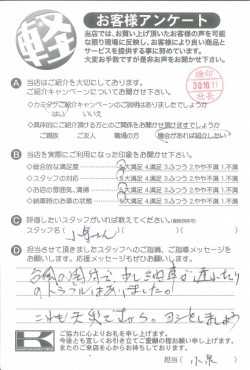 軽
お客様アンケート
当店では、お買い上げ頂いたお客様の声を可能
な限り現場に反映し、お客様により良い商品と
サービスを提供する事に努めています。
大変お手数ですが是非お声をお聞かせ下さい。
A 当店はご紹介を大切にしてあります。
ご紹介キャンペーンについてお聞かせ下さい
・カミタケご紹介キャンペーンのご説明はありましたでしょうか
はい いいえ
・具体的にご紹介頂ける方とのご関係をお聞かせ頂けますでしょうか
ご親族 ご友人 職場の方 機会があれば紹介したい
B 当店を実際にご利用になった印象をお聞かせ下さい。
・総合的な満足度 5大満足 4.満足 3.ふつう 2.やや不満 1.不満
・スタッフの対応 5大満足 4.満足 3.ふつう 2.やや不満 1.不満
・お店の雰囲気、清掃 5大満足 4.満足 3.ふつう 2.やや不満 1.不満
・納車時のお車の状態 5大満足 4.満足 3.ふつう 2.やや不満 1.不満
C 評価したいスタッフがいれば教えてください。
スタッフ名 小泉さん
D 担当させて頂きましたスタッフへのご指摘、ご指導メッセージを
お願いします。応援メッセージもぜひお願いします。
台風の関分で、少し納車が遅れたり
のトラブルはありましたが
これも天災ですから。ヨシとしましょう
ご協力に心よりお礼を申し上げます。
今後とも宜しくお引き立てご愛顧の程お願い申し上げます。
またのご来店を心からお待ちしております。
担当（ 小泉 ）